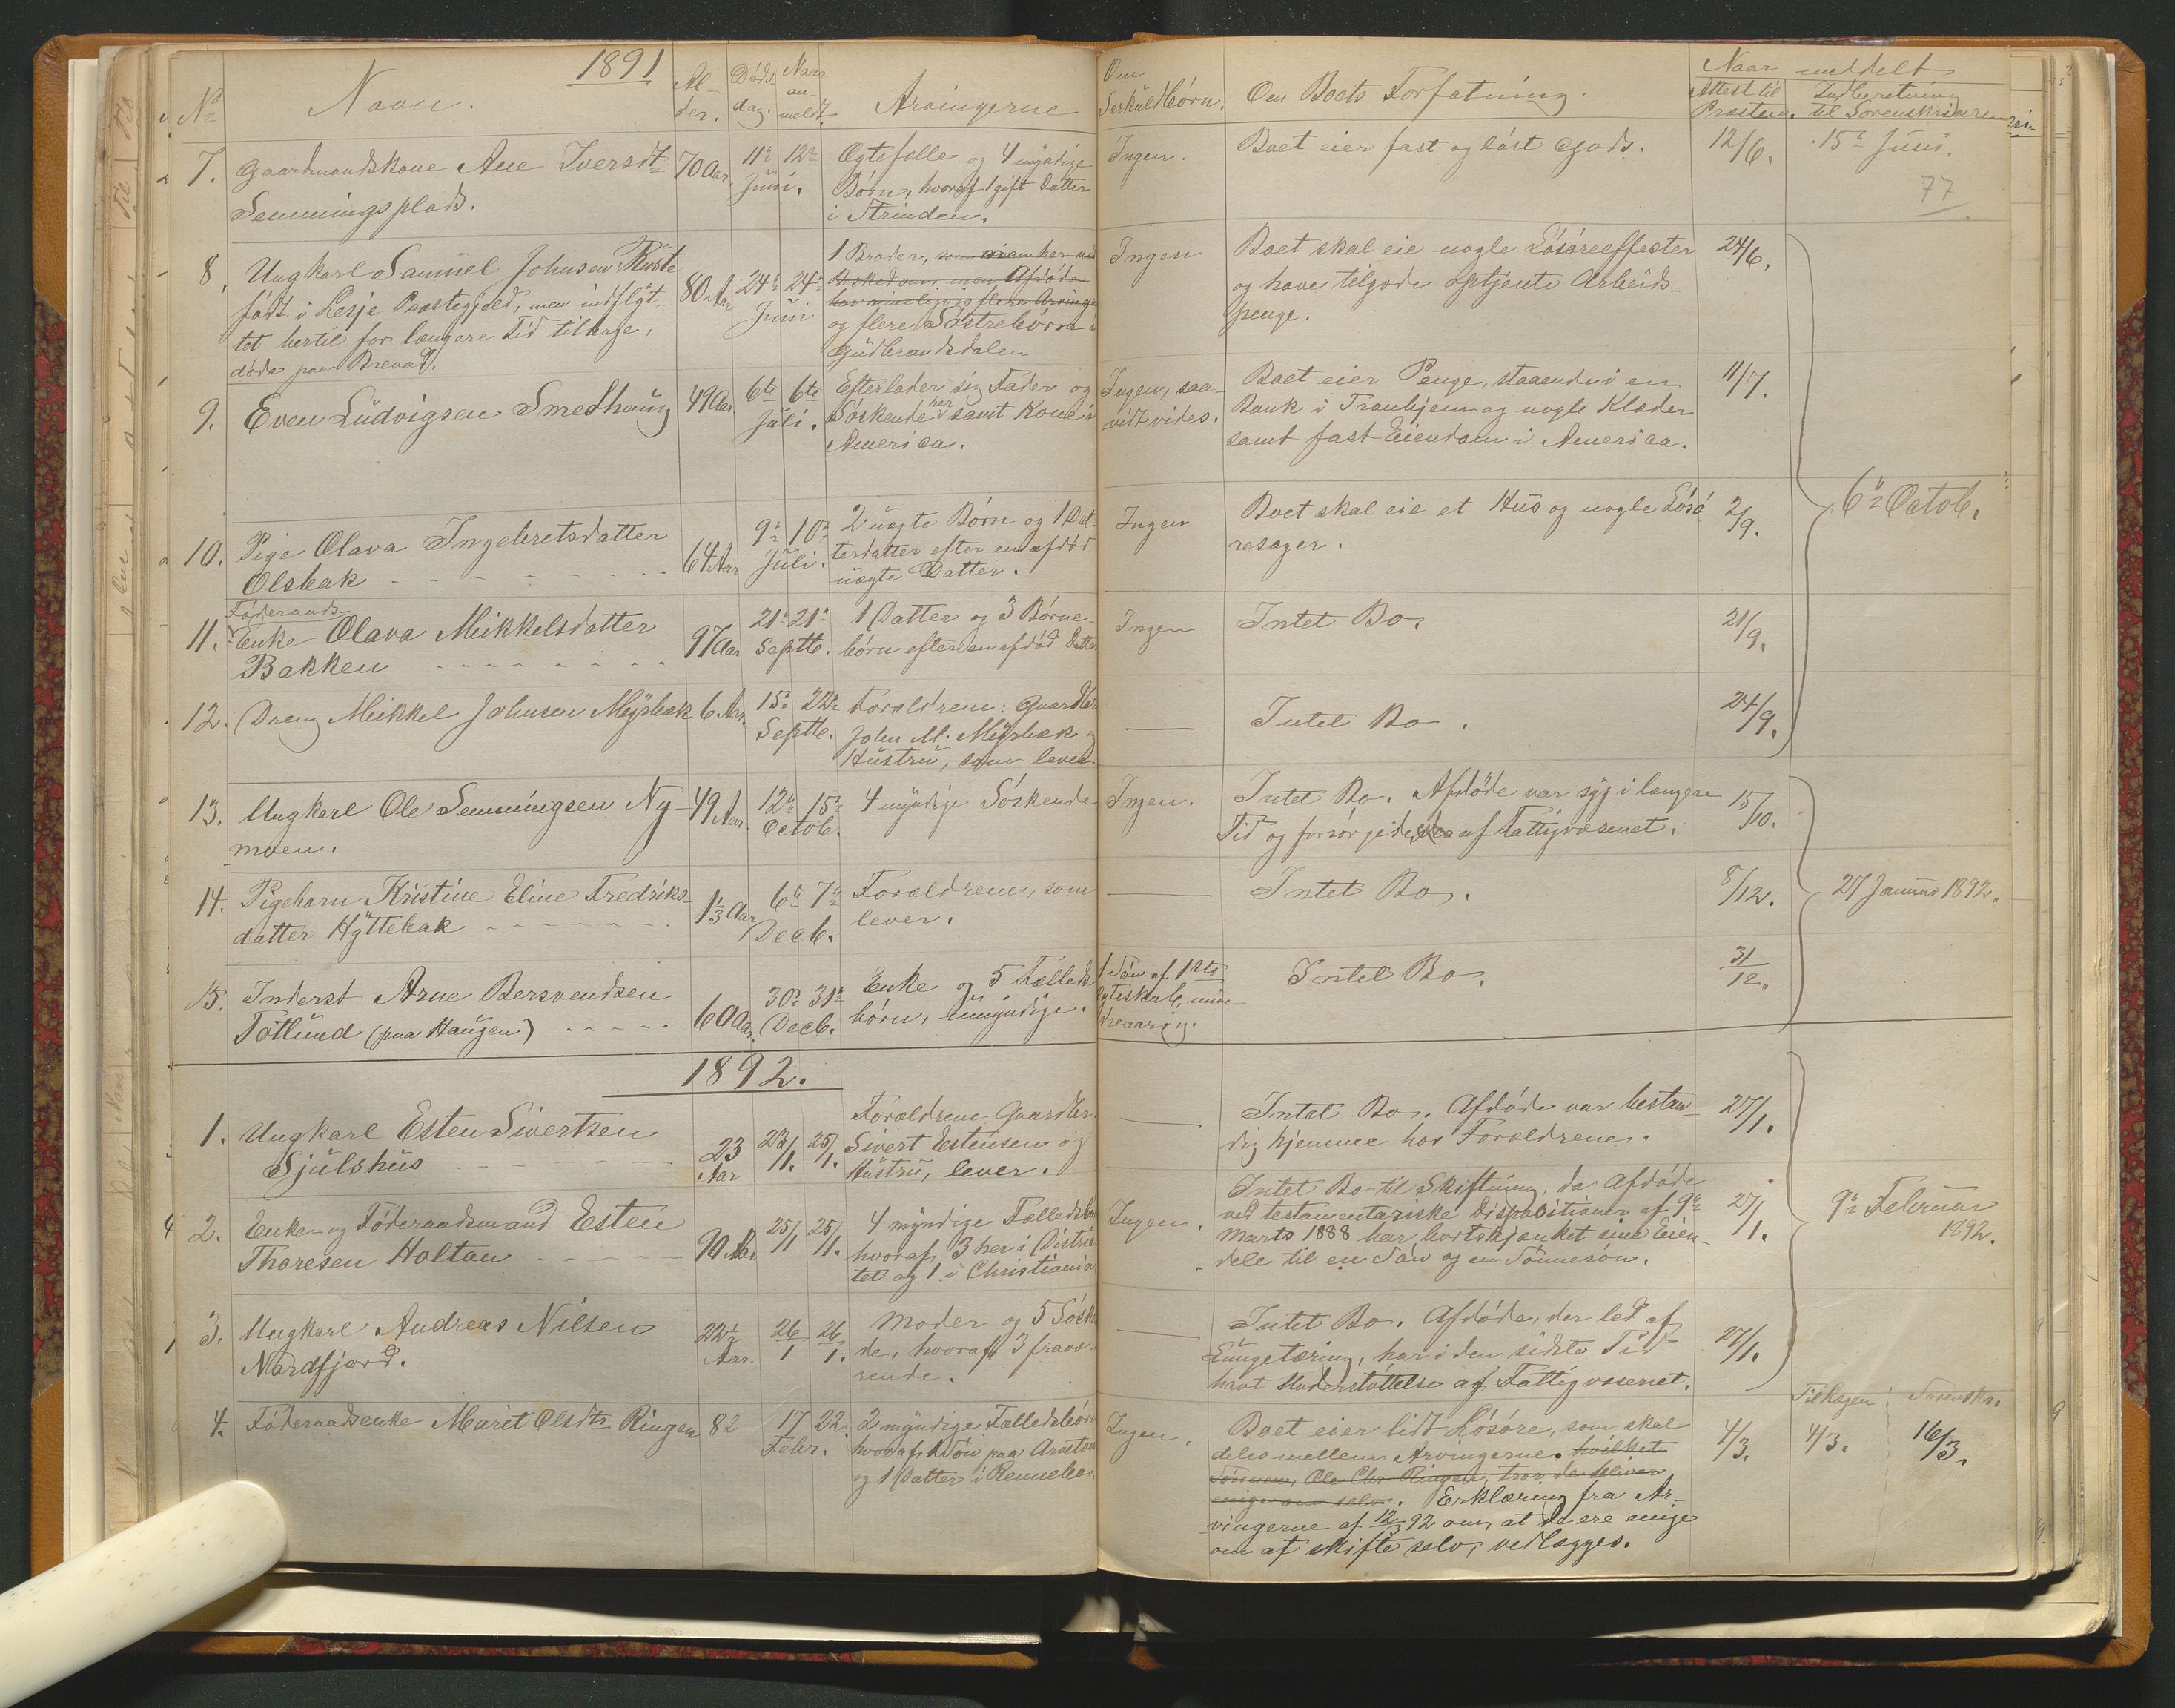 1891
No
Navn.
Al-
der.
Døds-
dag.
Naar
an-
meldt.
Arvingerne
Om
Særkuldbørn.
Om Boets Forfatning.
Naar meddelt
Attest til
Præsten.
Indberetning
til Sorenskriveren
7. Gaardmandskone Ane Iversdtr
Semmingsplads.
70 Aar.
11te 12te
Juni.
Ægtefælle og 4 myndige
Børn, hvoraf 1 gift Datter
i Strinden.
Ingen.
Boet eier fast og løst Gods.
12/6.
15de Juni.
77
8. Ungkarl Samuel Johnsen Ruste
født i Lesje Præstegjeld, men indflyt-
tet hertil for længere Tid tilbage,
døde paa Brevad.
80 Aar
24de 24de
Juni
1 Broder, som man her ved
Besked om, men Afdøde
har rimeligvis flere Arvinger
og flere Søstrebørn i
Gudbrandsdalen
Ingen
Boet skal eie nogle Løsøreeffecter
og have tilgode optjente Arbeids-
penge.
24/6.
9. Even Ludvigsen Smedhaug
49 Aar.
6te 6te
Juli.
Efterlader sig Fader og
Søskende her samt Kone i
America.
Ingen, saa-
vidt vides.
Boet eier Penge, staaende i en
Bank i Tronhjem og nogle Klæder
samt fast Eiendom i America.
11/7.
10. Pige Olava Ingebretsdatter
Olsbak
64 Aar
9de 10de
Juli.
2 uægte Børn og 1 Dat-
terdatter efter en afdød
uægte Datter.
Ingen
Boet skal eie et Hus og nogle Løsø
resager.
2/9.
6te Octob.
11. Føderaads-
Enke Olava Mikkelsdatter
Bakken
97 Aar
21de 21de
Septb.
1 Datter og 3 Børne-
børn efter en afdød Datter
Ingen
Intet Bo.
21/9.
12. Dreng Mikkel Johnsen Myrbak
6 Aar.
15de 22de
Septb.
Forældrene: Gaardbr
John M. Myrbæk og
Hustru, som lever.
Intet Bo.
24/9.
13. Ungkarl Ole Semmingsen Ny-
moen.
49 Aar.
12te 15de
Octob.
4 myndige Søskende
Ingen.
Intet Bo. Afdøde var syg i længere
Tid og forsørgedes af Fattigvæsenet.
15/10.
14. Pigebarn Kristine Eline Fredriks-
datter Hyttebak
1 1/3 Aar
6te 7de
Decb.
Forældrene, som
lever.
Intet Bo.
8/12.
27 Januar 1892.
15. Inderst Arne Bersvendsen
Totlund (paa Haugen)
60 Aar.
30te 31te
Decb.
Enke og 5 Fælleds
børn, umyndige.
1 Søn af 1ste
Egteskab, min-
dreaarig.
Intet Bo.
31/12.
1892.
1. Ungkarl Esten Sivertsen
Sjulshus
23
Aar
23/1. 25/1.
Forældrene Gaardbr.
Sivert Estensen og
Hustru, lever.
Intet Bo. Afdøde var bestan-
dig hjemme hos Forældrene.
27/1.
2. Enke- og Føderaadsmand Esten
Thoresen Holtan
90 Aar
25/1 25/1.
4 myndige Fælledsbørn
hvoraf 3 her i Distric-
tet og 1 i Christiania
Ingen.
Intet Bo til Skiftning, da Afdøde
ved testamentariske Dispositioner af 9de
Marts 1888 har bortskjænket sine Eien-
dele til en Søn og en Sønnesøn.
27/1.
9de Februar
1892.
3. Ungkarl Andreas Nilsen
Nordfjord.
22 1/2
Aar.
26/1 26/1.
Moder og 5 Søsken
de, hvoraf 3 fravæ-
rende.
Intet Bo. Afdøde, der led af
Lungetæring, har i den sidste Tid
havt Understøttelse af Fattigvæsenet.
27/1.
4. Føderaadsenke Marit Olsdtr Ringen
82
17 22.
Febr.
2 myndige Fælledsbørn
hvoraf 1 Søn paa
og 1 Datter i Rennebo.
Ingen.
Boet eier lidt Løsøre, som skal
deles mellem Arvingerne. hvilket
Sønnen, Ole Chr. Ringen, tror de bliver
enige om selv. Erklæring fra Ar-
vingerne af 12/3 92 om, at de ere enige
om at skifte selv, vedlægges.
4/3.
4/3.
Sorenskr.
16/3.